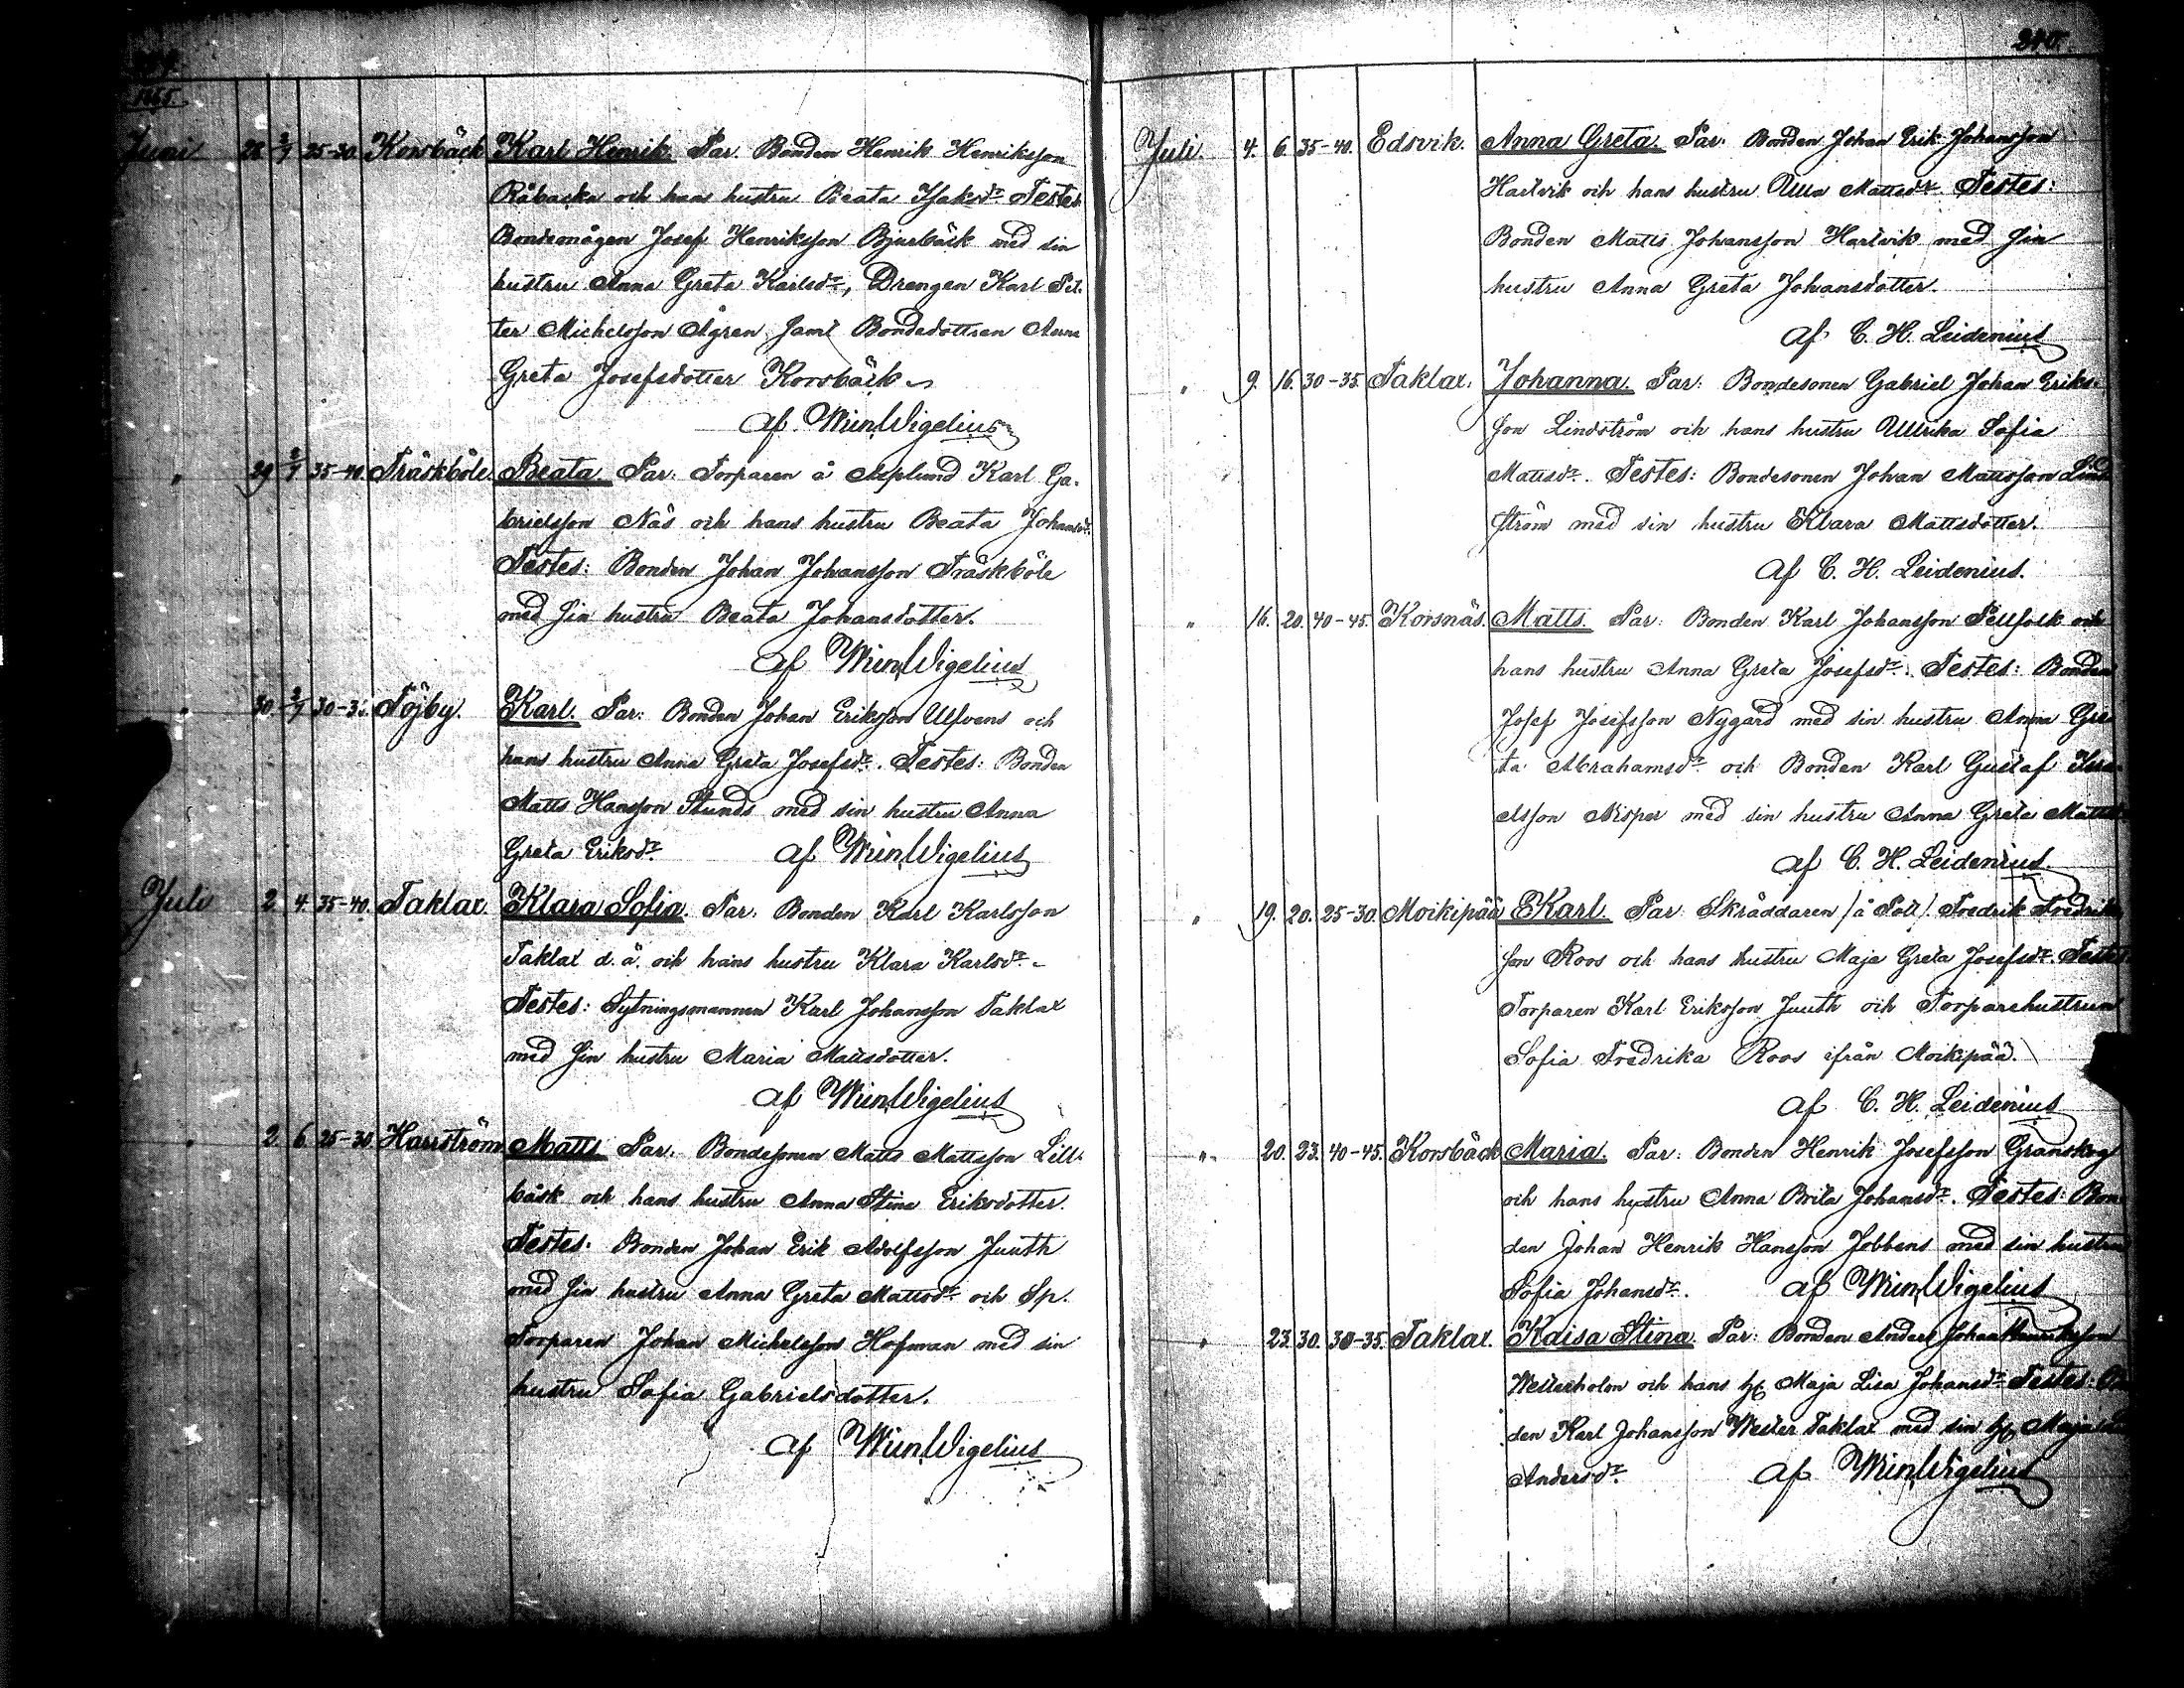 1865
Juni 28 2/7 25-30. Korsbäck Karl Henrik. Par. Bonden Henrik Henriksson
Råbacka och hans hustru Beata Isaksdr Testes
Bondemågen Josef Henriksson Bjurbäck med sin
hustru Anna Greta Karlsdr, Drengen Karl Pet-
ter Michelsson Ågren samt Bondedottren Anna
Greta Josefsdotter Korsbäck
af Wm Wigelius
" 29 2/7 35-40. Träskböle. Beata. Par. Torparen å Asplund Karl Ga-
brielsson Näs och hans hustru Beata Johansdr.
Testes: Bonden Johan Johansson Träskböle
med sin hustru Beata Johansdotter.
af Wm Wigelius
" 30. 2/7 30-35. Töjby. Karl. Par: Bonden Johan Eriksson Ulfvens och
hans hustru Anna Greta Josefsdr. Testes: Bonden
Matts Hansson Stunds med sin hustru Anna
Greta Eriksdr. af Wm Wigelius
Juli 2 4. 35-40. Taklax Klara Sofia. Par. Bonden Karl Karlsson
Taklax d.ä. och hans hustru Klara Karlsdr.
Testes: Sytningsmannen Karl Johansson Taklax
med sin hustru Maria Mattsdotter.
af Wm Wigelius
" 2. 6. 25-30 Harrström Matts Par. Bondesonen Matts Mattsson Lill-
bäck och hans hustru Anna Stina Eriksdotter.
Testes. Bonden Johan Erik Adolfsson Juuth
med sin hustru Anna Greta Mattsdr och Sp.
Torparen Johan Michelsson Hofman med sin
hustru Sofia Gabrielsdotter.
af Wm Wigelius
Juli. 4. 6. 35-40. Edsvik. Anna Greta. Par: Bonden Johan Erik Johansson
Hartvik och hans hustru Ulla Mattsdr. Testes:
Bonden Matts Johansson Hartvik med sin
hustru Anna Greta Johansdotter.
af C. H. Leidenius
" 9. 16. 30-35. Taklax. Johanna. Par: Bondesonen Gabriel Johan Eriks-
son Lindström och hans hustru Ullrika Sofia
Mattsdr. Testes: Bondesonen Johan Mattsson Lind
ström med sin hustru Klara Mattsdotter.
af C. H. Leidenius.
" 16. 20. 40-45. Korsnäs. Matts. Par: Bonden Karl Johansson Pellfolk och
hans hustru Anna Greta Josefsdr. Testes: Bonden
Josef Josefsson Nygård med sin hustru Anna Gre
ta Abrahamsdr och Bonden Karl Gustaf
elsson Nisper med sin hustru Anna Greta
af C. H. Leidenius
" 19. 20. 25-30. Moikipää Karl. Par: Skräddaren /å Poll/. Fredrik Fredriks
son Roos och hans hustru Maja Greta Josefsdr. Testes
Torparen Karl Eriksson Juuth och Torparehustrun
Sofia Fredrika Roos ifrån Moikipää.
af C. H. Leidenius
" 20. 23. 40-45. Korsbäck Maria. Par: Bonden Henrik Josefsson Granskog
och hans hustru Anna Brita Johansdr. Testes: Bon
den Johan Henrik Hansson Jobbens med sin hustru
Sofia Johansdr. af Wm Wigelius
" 23. 30. 30-35. Taklax. Kaisa Stina. Par: Bonden Anders Johan Henriksson
Westerholm och hans h. Maja Lisa Johansdr Testes:
den Karl Johansson Wester Taklax med sin h. Maja
Andersdr. af Wm Wigelius